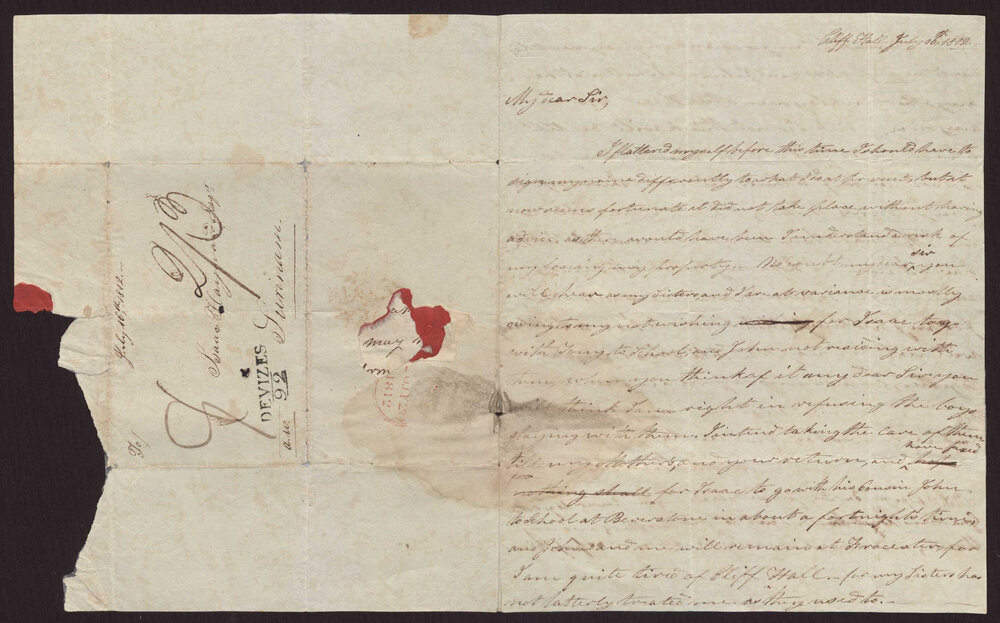 Cliff Hall July 16th 1812
My dear Sir,
I flattered myself before this time I should have to
sign my name differently to what I do at present, but at
now seems fortunate it did not take place without having
advice, as there would have been I understand a risk of
my loosing my property. No doubt my dear sir you
will hear as my Sisters and I are at variance is mostly
owing to my not wishing for Isaac to go
with Tony to School, and John not residing with
him, when you think of it my dear Sir you
will think I am right in refusing the boys
staying with them. I intend taking the care of them
till my Mothers and your return, and have fixed
for Isaac to go with his cousin John
to School at Beverstone in about a fortnight's time
and John and me will remain at Frocester for
I am quite tired of Cliff Hall – for my Sisters has
not latterly treated me as they used to. –
July 16th 1812
To/
Isaac Hayward Esqr
Surinam
2/3
DEVIZES
92
a.w.
may